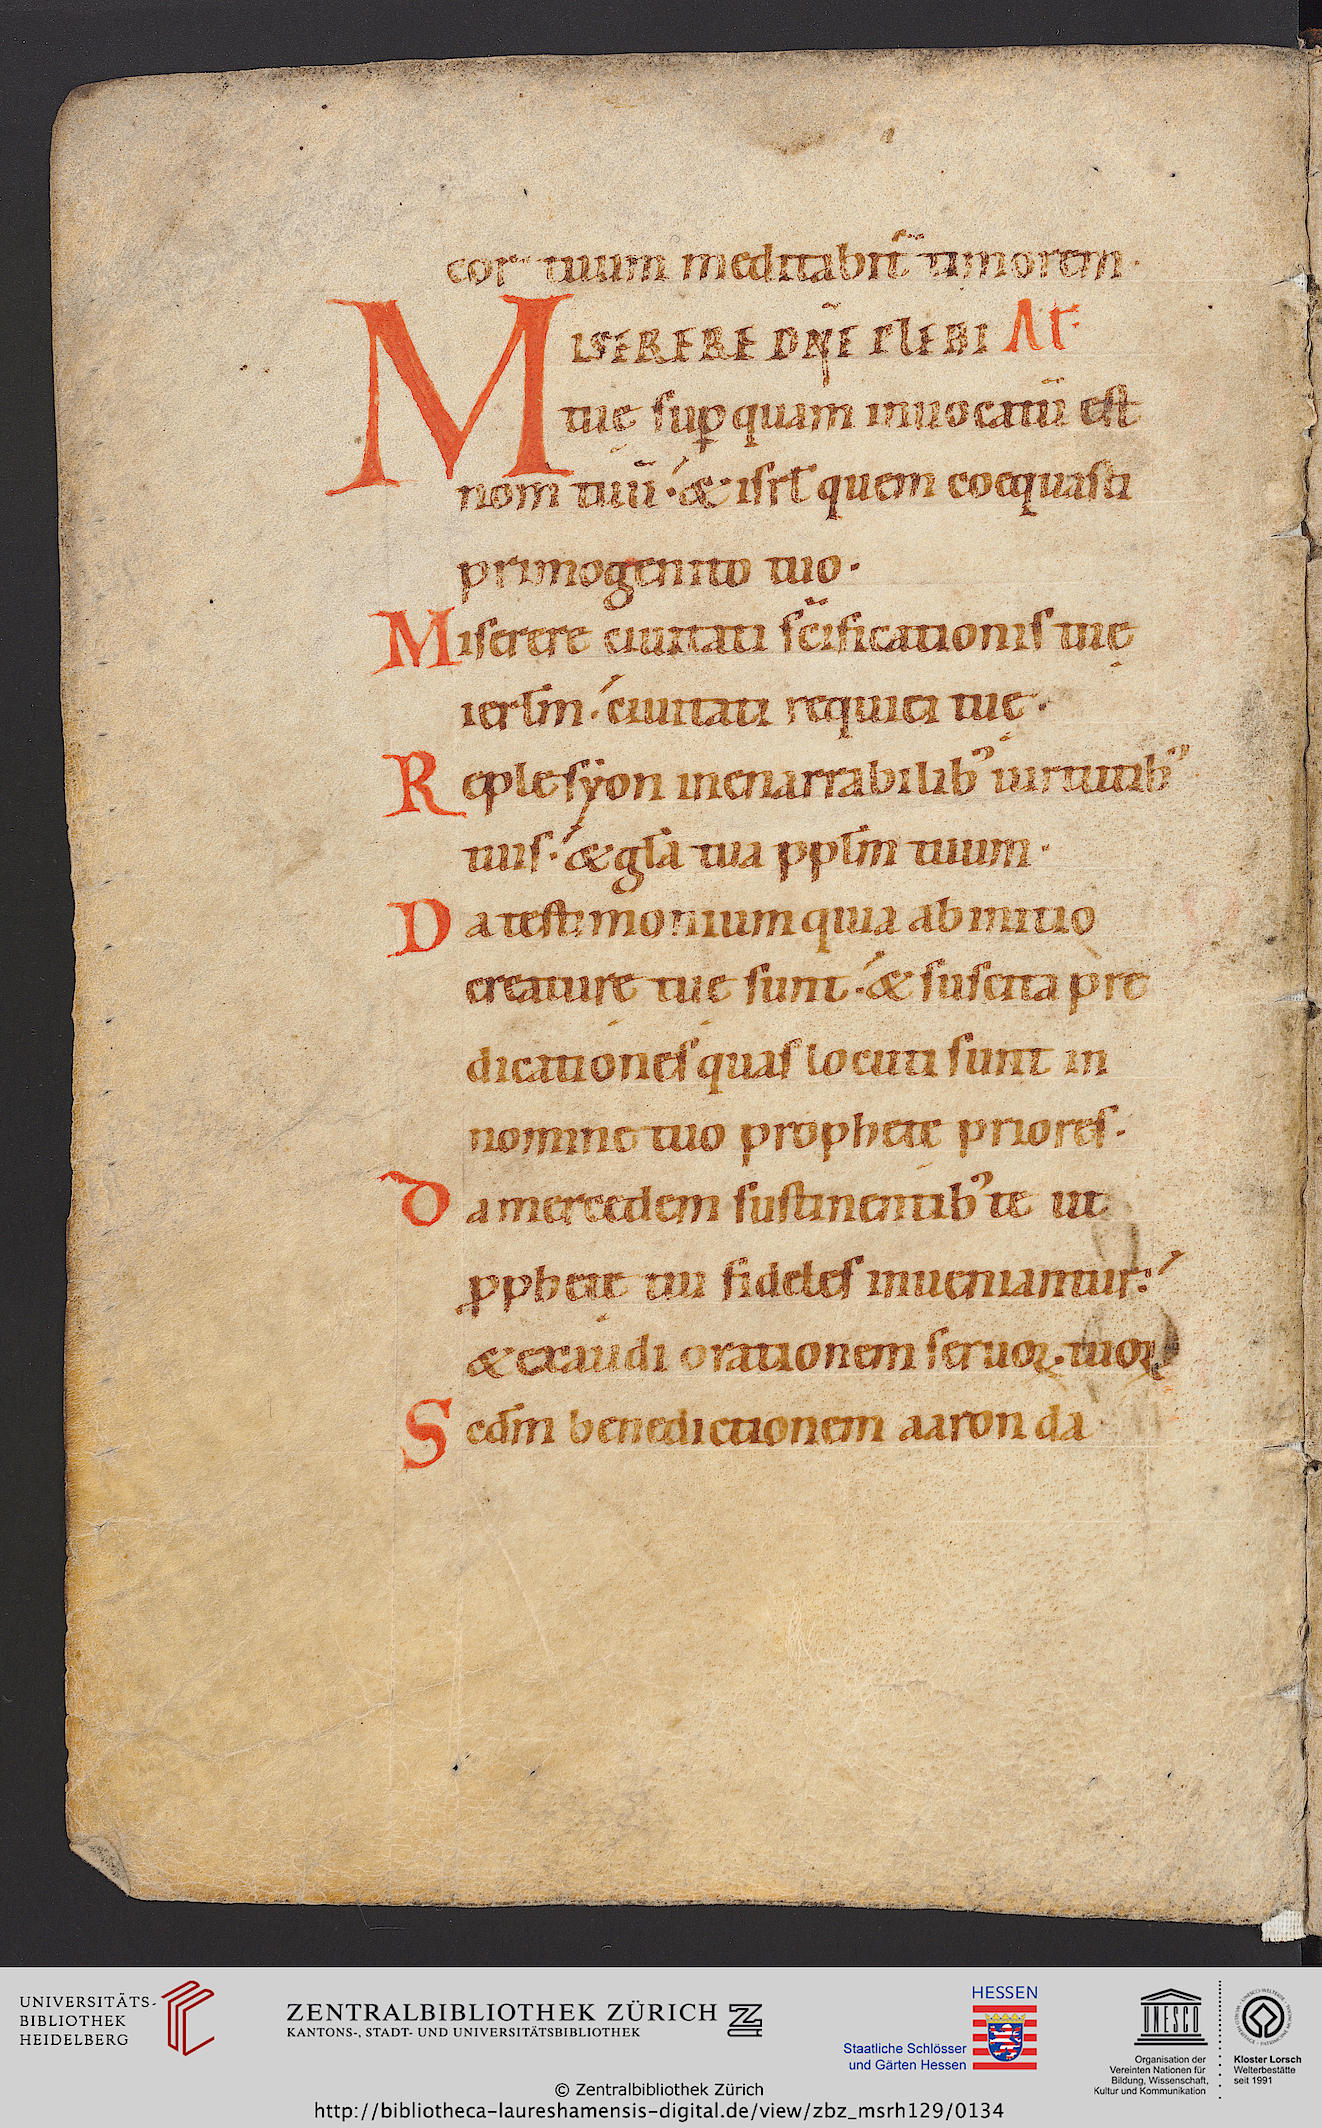 cor tuum meditabit᷑ timorem.
MISERERE DN̄E PLEBI At͛.
tuę suꝑ quam inuocatū est
nom̄ tuū .́ & isrl̄ quem coequasti
primogenito tuo.
Miserere ciuitati sc̄ificationis tuę
ierl̄m .́ ciuitati requiei tuę.
Reple syon inenarrabilib⁹ uirtutib⁹
tuis .́ & gl̄a tua ppl̄m tuum.
Da testimonium quia ab initio
creature tue sunt .́ & suscita pre
dicationes quas locuti sunt in
nomine tuo prophete priores.
Da mercedem sustinentib⁹ te ut
ꝓphete tui fideles inueniantur .́
& exaudi orationem seruoꝝ tuoꝝ
Scd̄m benedictionem aaron da
UNIVERSITÄTS-
BIBLIOTHEK
HEIDELBERG
ZENTRALBIBLIOTHEK ZÜRICH
KANTONS-, STADT- UND UNIVERSITÄTSBIBLIOTHEK
HESSEN
Staatliche Schlösser
und Gärten Hessen
UNESCO
Organisation der
Vereinten Nationen für
Bildung, Wissenschaft,
Kultur und Kommunikation
Kloster Lorsch
Welterbestätte
seit 1991
© Zentralbibliothek Zürich
http://bibliotheca-laureshamensis-digital.de/view/zbz_msrh129/0134